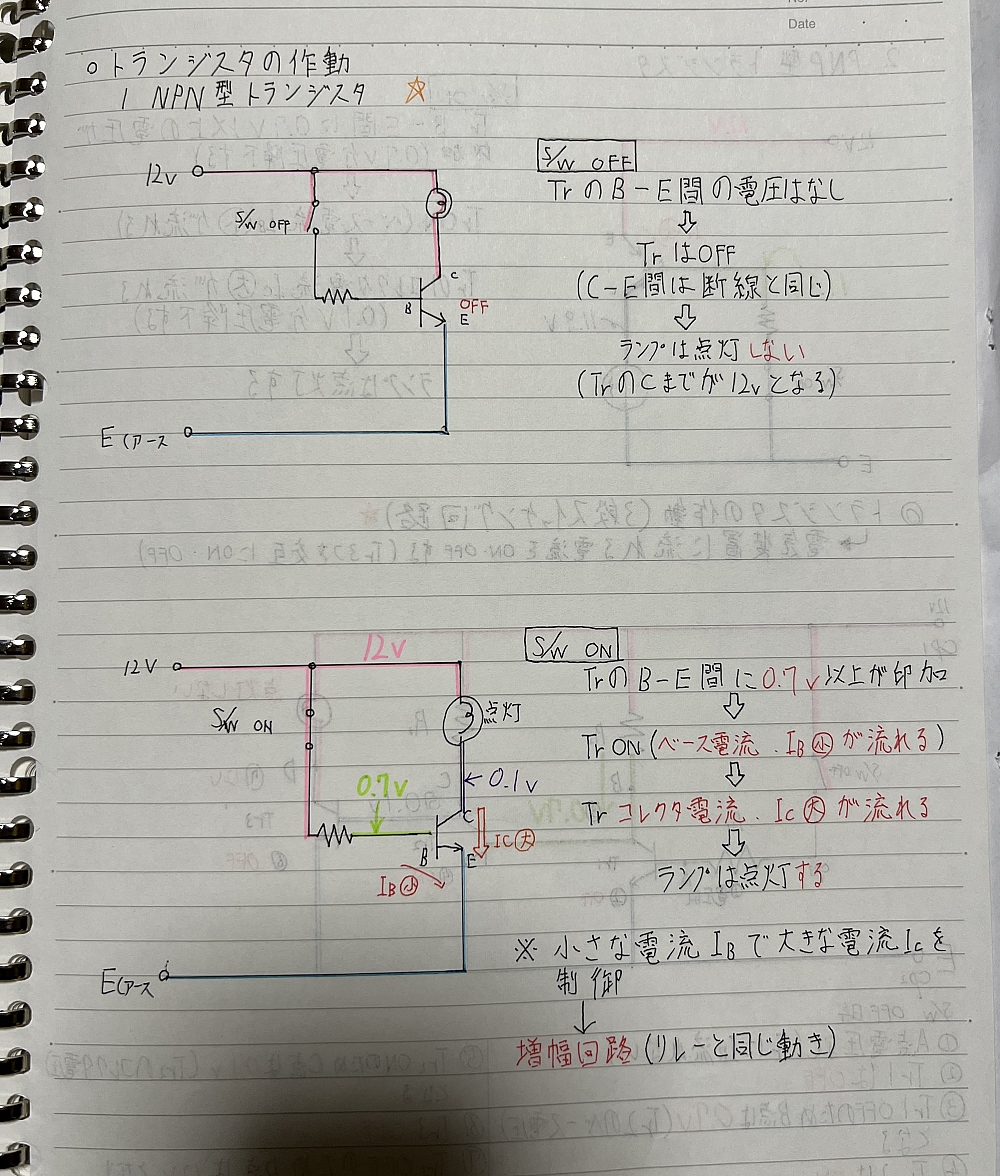 Date
○トランジスタの作動
1 NPN型トランジスタ ☆
12v
S/W OFF
C
B
OFF
E
E(アース
S/W OFF
TrのB-E間の電圧はなし
⇩
TrはOFF
(C-E間は断線と同じ)
⇩
ランプは点灯しない
(TrのCまでが12vとなる)
12V
12v
S/W ON
点灯
0.7v
←0.1v
C
B
E
IC大
IB小
E(アース
S/W ON
TrのB-E間に0.7v以上が印加
⇩
Tr ON (ベース電流.IB小が流れる)
⇩
Tr コレクタ電流.Ic大が流れる
⇩
ランプは点灯する
※ 小さな電流IBで大きな電流Icを
制御
↓
増幅回路(リレーと同じ動き)